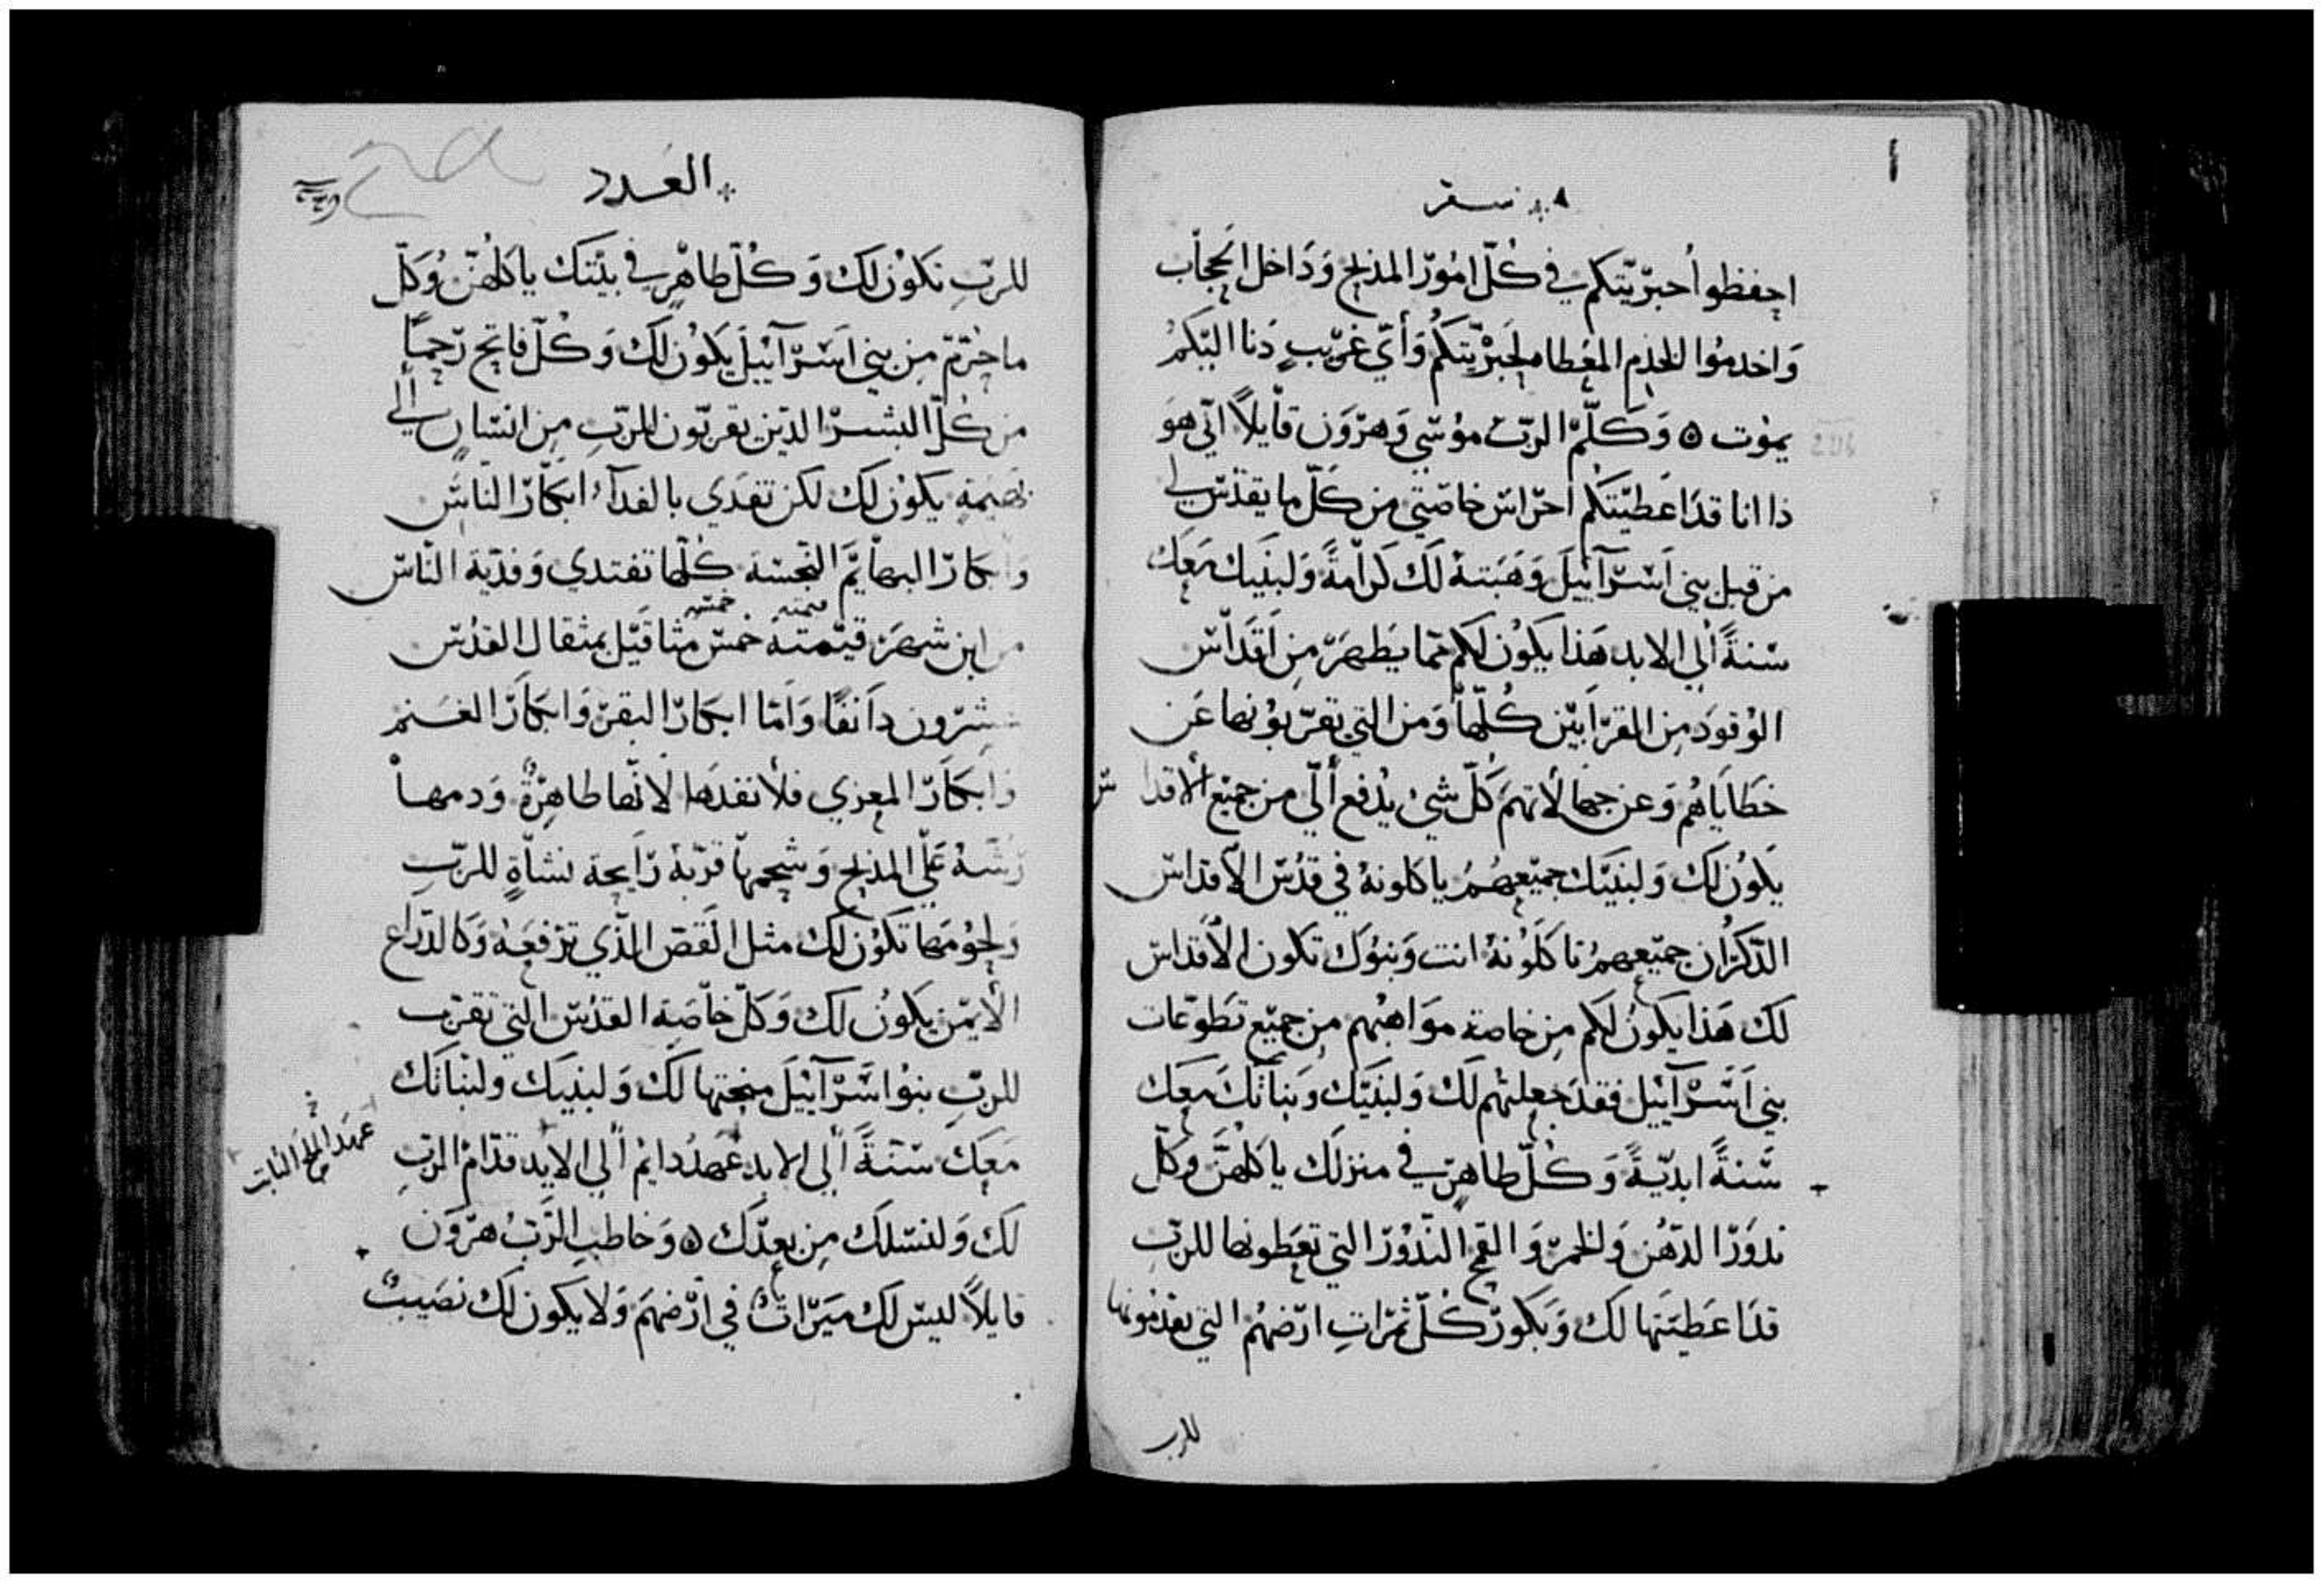 سفر
احفظوا حبرّيتكم في كُلّ امُورّ المذبح وَدَاخل الحِجاب
وَاخدموُا الخدم المعُطاه لحَبرْيّتكُم وَأيّ غرّيب دَنا اليّكمُ
يموُت ه وَكَلّمَّ الربّ موُسّي وَهرّوَن قاْيلاً انّي هوَ
ذا انا قدَاعَطيّتكُم احرّاسّ خاصّتي من كَلّ ما يقدّسّ لي
من قبل بني اسّرّآييلَ وَهَبتهُ لَك كرّامةً وَلبنيك معَكَ
سّنةً الي الابد هَذا يكَوُن لكم ممّا يَطهَرّ من اَقدَاسّ
الوُقودَ من القرّابيّن كُلّها وَمن التي تقرّبوُنها عَن
خطَاياهُم وَعن جهالاتهمَ كَلّ شيُ يدُفع اليّ من جميّع الاقداسّ
يَكوُن لَك وَلبنيّك جميّعهمُ ياكلونهُ في قدُسّ الاقداسّ
الذكرُان جميّعهمُ تاكَلَوُنهُ انت وَبنوُك تكون الاقداسّ
لك هَذا يكوُن لكم من خاصة موَاهبُهم من جميّع تَطوّعات
بني اسّرْآييل فقدَ جعلتُهم لَك وَلبنيّك وَبناتَك معَك
سّنةً ابديّةً وَكُلّ طاهرّ في منزلَك ياكلهنَّ وكلّ
ندوَرّ الدّهُن وَالخمرّ وَالقمح النّدوُرّ التي تعَطونها للربّ
قدَاعَطيتَها لك وَبَكوُرّ كُلّ ثمرّات ارّضهمُ التي يقدّمونها
للرب
العَدد
للربّ تكَوُن لك وَكُلّ طاهْر في بيّتك ياكلهُنّ وُكَلّ
ماحرّمّ من بني اسّرّآييلَ يَكوُن لكَ وَكُلّ فاتح رّحمًا
من كُلّ البشرّ الذيّن يقربّون للربّ من انسّان الي
بَهيَمة يكوُن لك لكن تفَدي بالفدآءُ ابكَارّ النّاسّ
وَابكارّ البهايّم النجّسّة كُلّها تفتدي وَفدّيّة النّاسّ
من ابن شهرَ قيّمتهُ خمسّ مثاقيّل بمثقال القدُسّ
عشرّون دانقًا وَاَمّا ابكارّ البقرّ وَابكارّ الغَنم
وَابكَارّ المعزي فلاْ تفدَها لانّها طاهرّةُ وَدمها
رّشّهُ عَليّ المذبح وَشحمهَا قرّبةُ رّايَحة نشاّة للربّ
وَلحوُمَها تكوُن لك مثل القَصّ الذّي ترّفعَهُ وَكالدرّاع
الايّمن يَكوُن لك وَكلّ خاّصَة القدُسّ التي تقرّب
للربّ بنوُاسّرّآييَل منحتها لكَ وَلبنيك ولبناتك
معَك سّنّةً الي الابد عَهدُ دايم الي الابد قدّام الربّ
عهد الملح الثابت
لك وَلنسّلك من بعدّك ه وَخاطبَ الرّبُ هرّوَن
قايلاً ليسّ لك ميَرّاثُ في ارّضهمَ وَلا يكون لك نصَيبُ